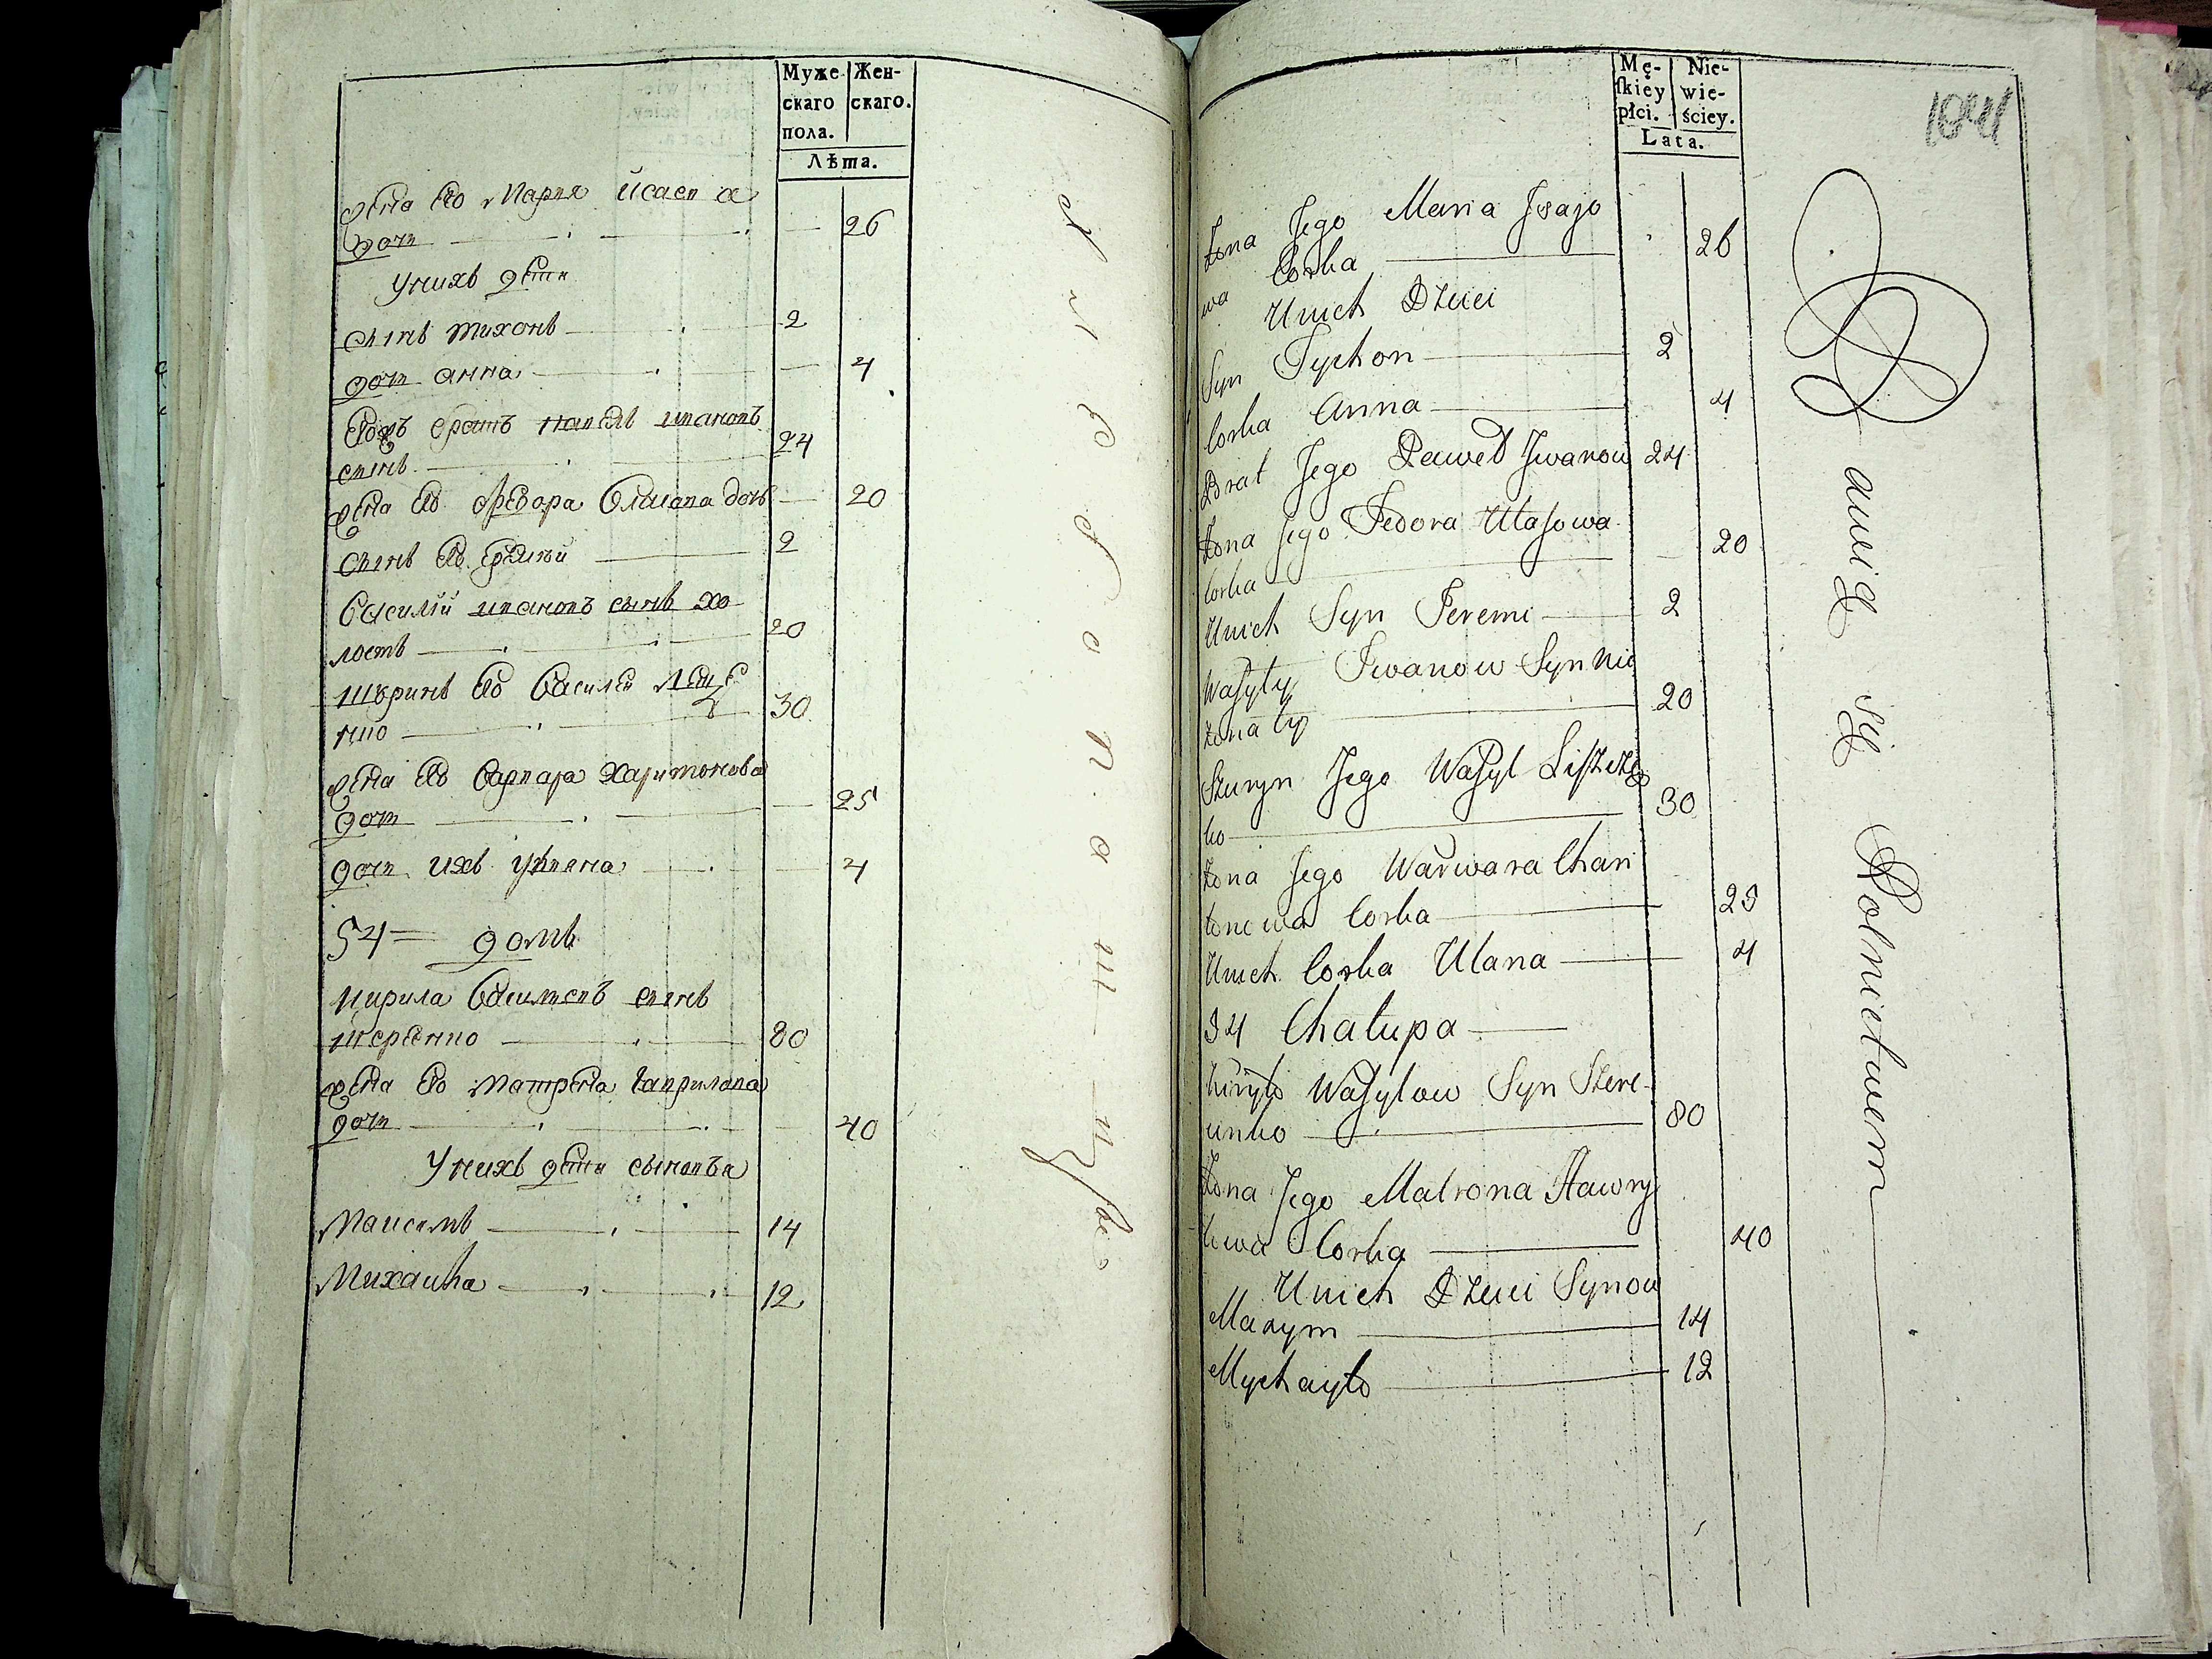 Муже
скаго
пола.
Жен-
скаго.
Лѣта.
жена его Мария Исаева
дочь — 26
У нихъ дети
сынъ тихонъ — 2
дочь анна — 4
Его братъ павелъ ивановъ
сынъ — 24
жена его Федора Власова дочь — 20
сынъ ихъ еремий — 2
Василий ивановъ сынъ хо
лостъ — 20
шуринъ его Василей Леще
нко — 30
жена его варвара Харитонова
дочь — 25
дочь ихъ уляна — 4
54 = домъ
кирила Васильевъ сынъ
80
жена его матрена гаврилова
дочь — 40
У нихъ дети сыновья
Максимъ — 14
Михайла — 12
Mę-
skiey
płci.
Nie-
wie-
ściey.
Lata.
1041
Żona Jego Maria Jsajo
wa Corka — 26
Unich Dzieci
Syn Tychon — 2
Corka Anna — 4
Brat Jego Paweł Jwanow 24
Żona Jego Fedora Ułasowa
Corka — 20
Unich Syn Jeremi — 2
Wasyly Jwanow Syn Nie
żonaty — 20
Szuryn Jego Wasyl Liszcze
ko — 30
Żona Jego Warwara Chari
tonowa Corka — 25
Unich Corka Ulana — 4
54 Chałupa —
Kiryło Wasylow Syn Szere-
80
Żona Jego Matrona Hawry
łowa Corka — 40
Unich Dzieci Synow
Maxym — 14
Mychayło — 12
Bawią się Rolnictwem